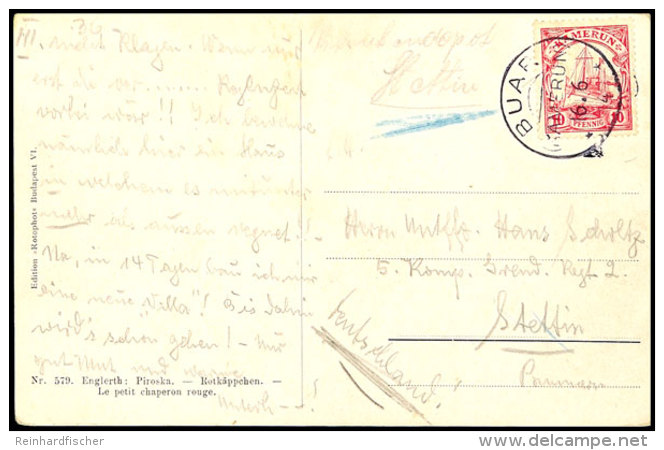 III.
nicht klagen. Wenn nur
erst die
vorbei wär'!! Ich bewohne
nämlich hier ein Haus
in welchem es mitunter
mehr als aussen regnet!! -
Na, in 14 Tagen bau ich mir
eine neue "Villa"! Bis dahin
wird's schon gehen! - Nur
gut Mut und
Edition »Rotophot« Budapest VI.
Nr. 579. Englerth: Piroska. — Rotkäppchen. —
Le petit chaperon rouge.
Stettin
KAMERUN
10 PFENNIG 10
BUEA
(KAMERUN)
6.6
Herrn Untffz. Hans Scholtz
5. Komp. Gren. Regt 2.
Stettin
Pommern
Deutschland!
Reinhardfischer
delcampe.net